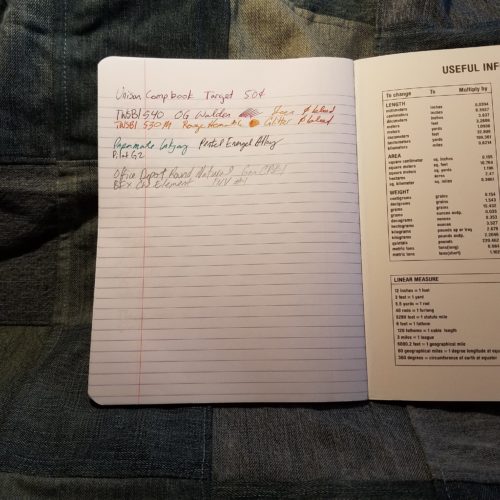 Unison Comp book Target 50¢
TWSBI 540 OG Walden
TWSBI 530 M Rouge Glitter
Papermate Pentel Energel Alloy
Pilot G2
Office Depot Round Natural
Element
USEFUL INF
To change To Multiply by
LENGTH
millimeters inches 0.0394
centimeters inches 0.3937
decimeters inches 3.937
meters feet
meters yards
kilometers miles 0.6214
AREA
square centimeter sq. inches 0.155
square meters sq. feet 10.764
square meters sq. yards
hectares acres 2.47
sq. kilometer sq. miles
WEIGHT
centigrams grains 0.154
decigrams grains 1.543
grams grains 15.432
grams ounces avdp. 0.035
decagrams ounces 0.353
hectograms ounces 3.527
kilograms pounds ap or troy 2.679
kilograms pounds avdp. 2.2046
quintals pounds 220.462
metric tons tons(long) 0.984
metric tons tons(short) 1.102
LINEAR MEASURE
12 inches = 1 foot
3 feet = 1 yard
5.5 yards = 1 rod
40 rods = 1 furlong
5280 feet = 1 statute mile
6 feet = 1 fathom
120 fathoms = 1 cable length
3 miles = 1 league
6080.2 feet = 1 geographical mile
60 geographical miles = 1 degree longitude at equa
360 degrees = circumference of earth at equator